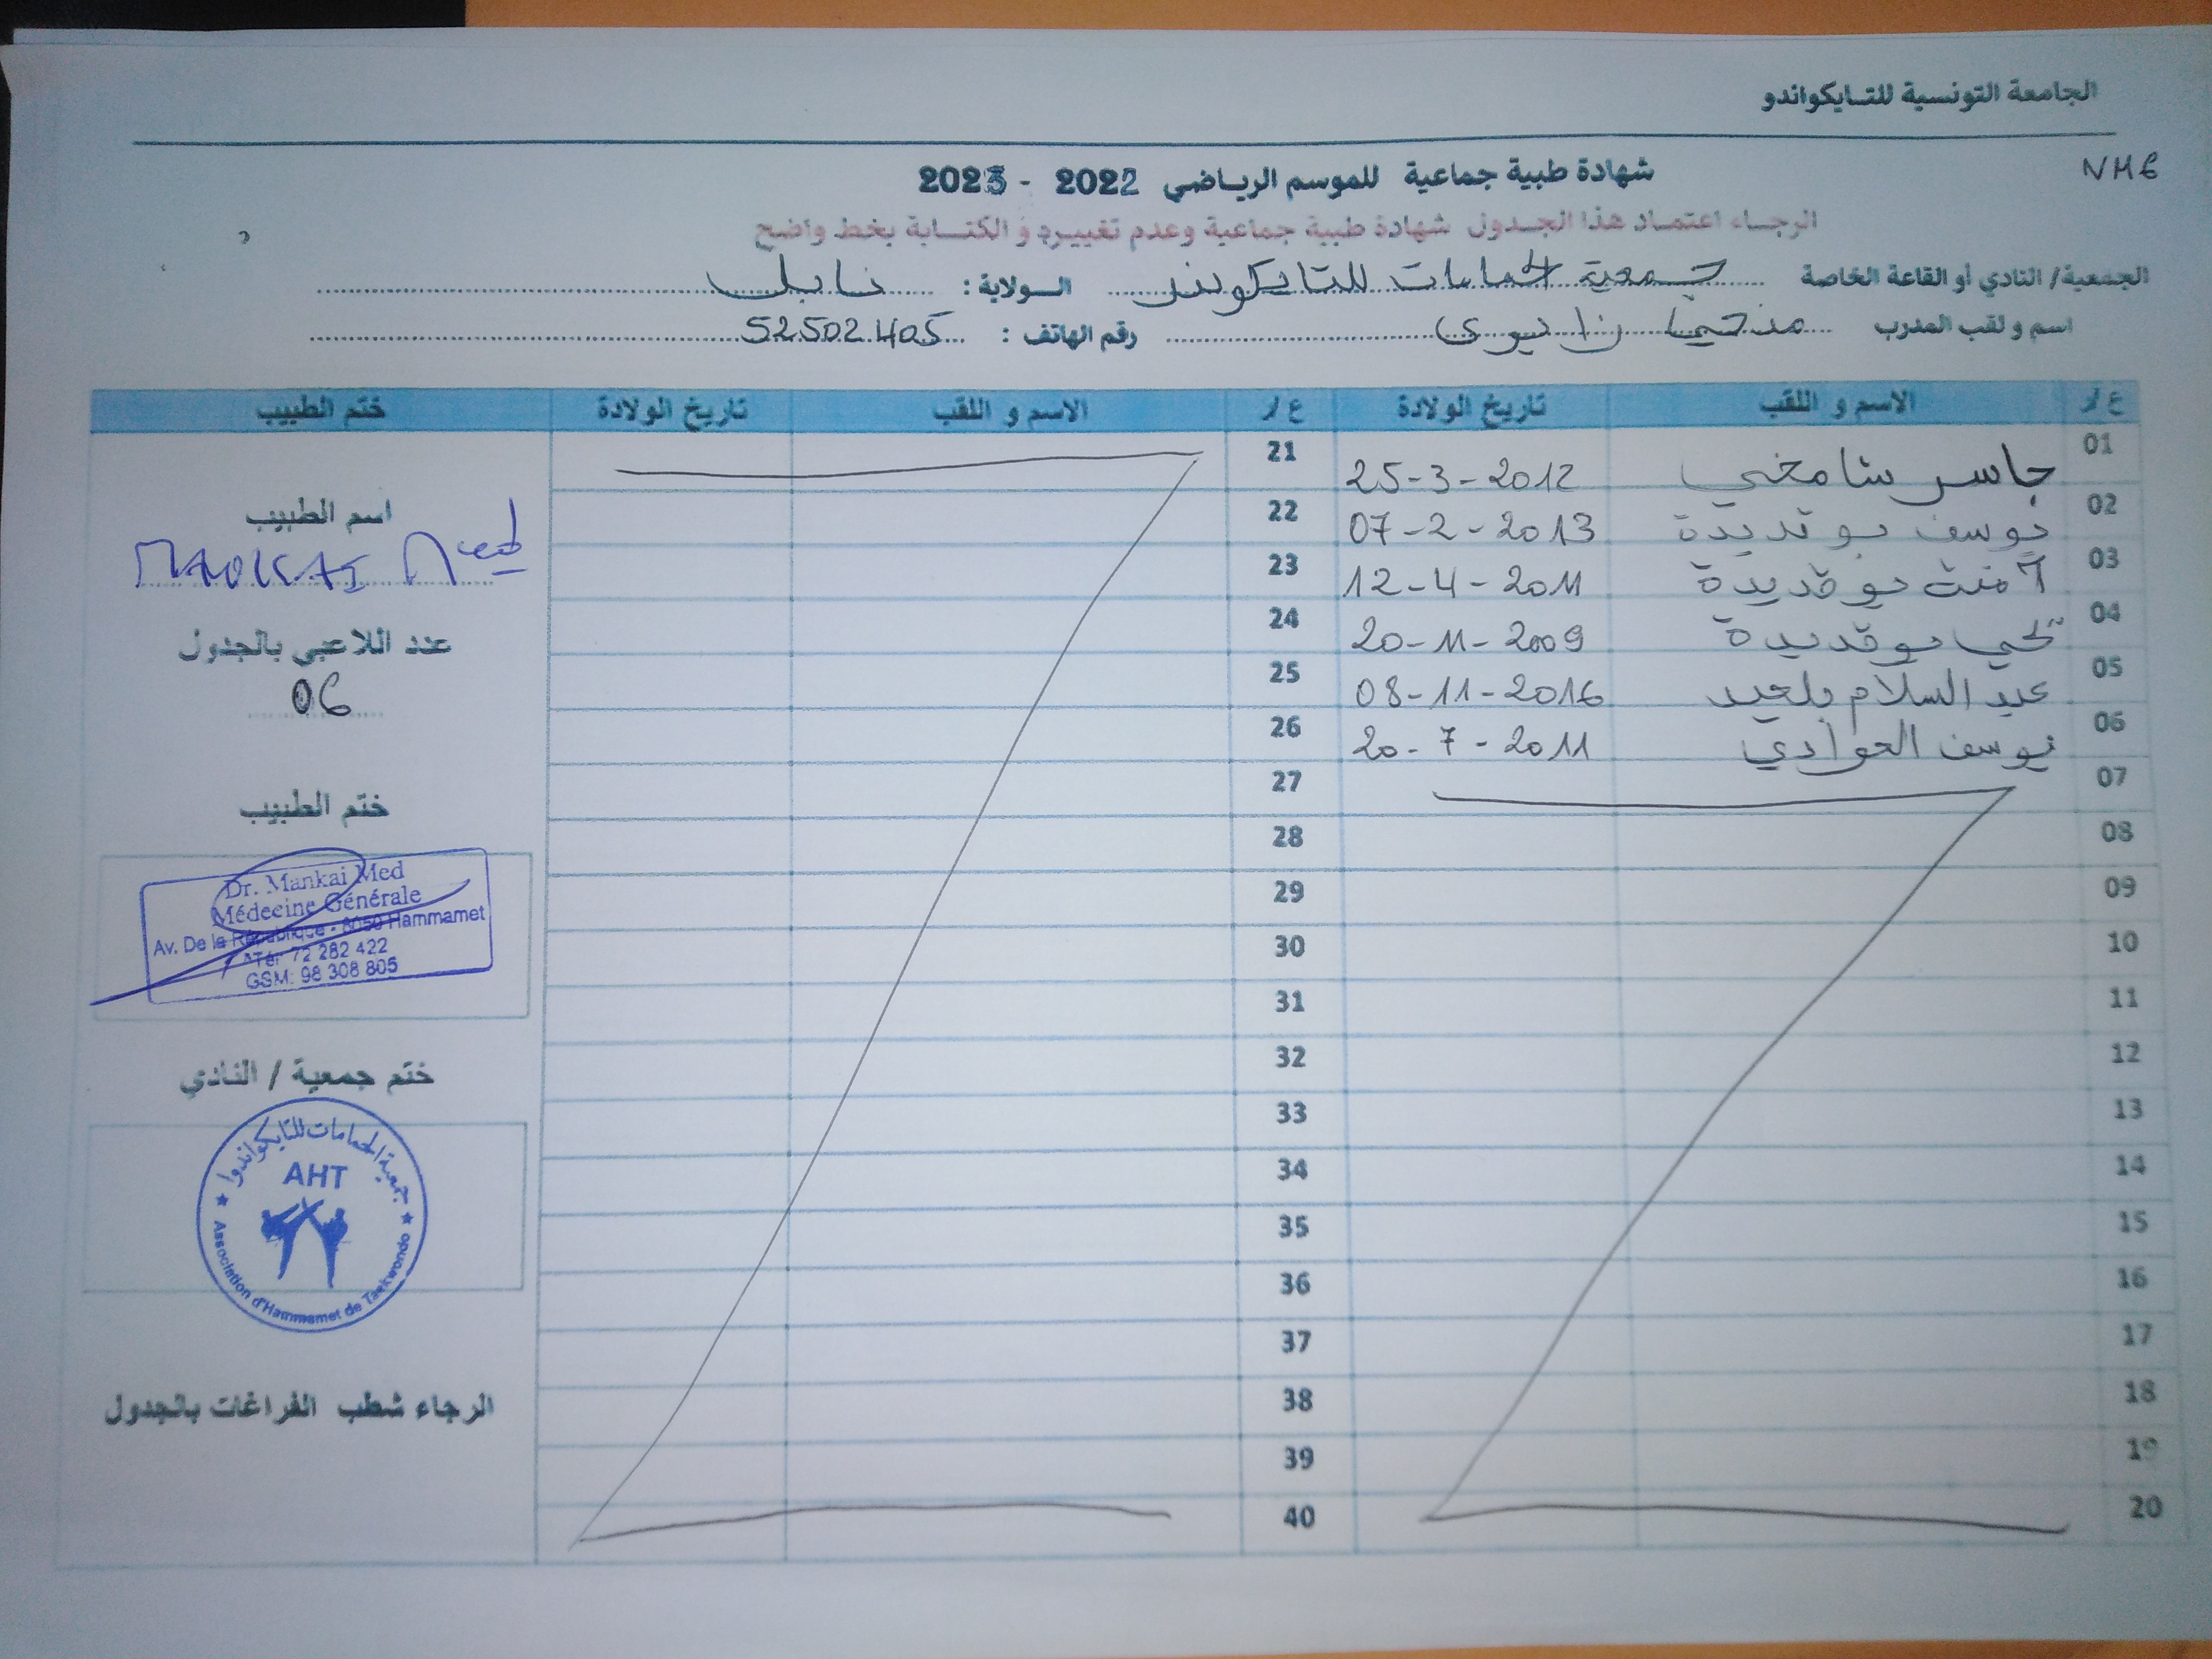 الجامعة التونسية للتايكواندو
NHE
شهادة طبية جماعية للموسم الرياضي 2022 - 2023
الرجاء اعتماد هذا الجدول شهادة طبية جماعية وعدم تغييره و الكتابة بخط واضح
الجمعية/ النادي أو القاعة الخاصة جمعية الحمامات للتايكوندو الولاية : نابل
اسم و لقب المدرب رقم الهاتف : 52502405
ع/ الاسم و اللقب تاريخ الولادة ع/ الاسم و اللقب تاريخ الولادة ختم الطبيب
01 جاسر شامخي 25-3-2012 21
02 يوسف بوقديدة 07-2-2013 22
03 آمنة بوقديدة 12-4-2011 23
04 بوقديدة 20-11-2009 24
05 عبد السلام بلعيد 08-11-2016 25
06 يوسف 20-7-2011 26
07 27
08 28
09 29
10 30
11 31
12 32
13 33
14 34
15 35
16 36
17 37
18 38
19 39
20 40
اسم الطبيب
MANKAI Med
عدد اللاعبي بالجدول
06
ختم الطبيب
Dr. Mankai Med
Médecine Générale
Av. De la République - 8050 Hammamet
Tél: 72 282 422
GSM: 98 308 805
ختم جمعية / النادي
جمعية الحمامات للتايكواندوا
AHT
Association d'Hammamet de Taekwondo
الرجاء شطب الفراغات بالجدول